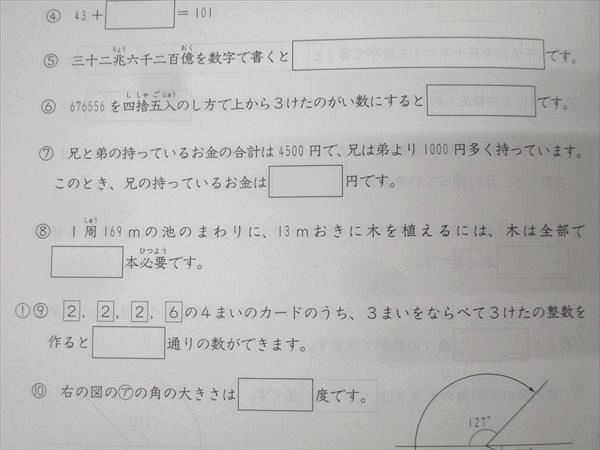 ④ 43＋ ＝101
⑤ 三十二兆六千二百億を数字で書くと です。
⑥ 676556を四捨五入のし方で上から3けたのがい数にすると です。
⑦ 兄と弟の持っているお金の合計は4500円で、兄は弟より1000円多く持っています。
このとき、兄の持っているお金は 円です。
⑧ 1周169mの池のまわりに、13mおきに木を植えるには、木は全部で
本必要です。
！⑨ 2, 2, 2, 6の4まいのカードのうち、3まいをならべて3けたの整数を
作ると 通りの数ができます。
⑩ 右の図の㋐の角の大きさは 度です。
127°